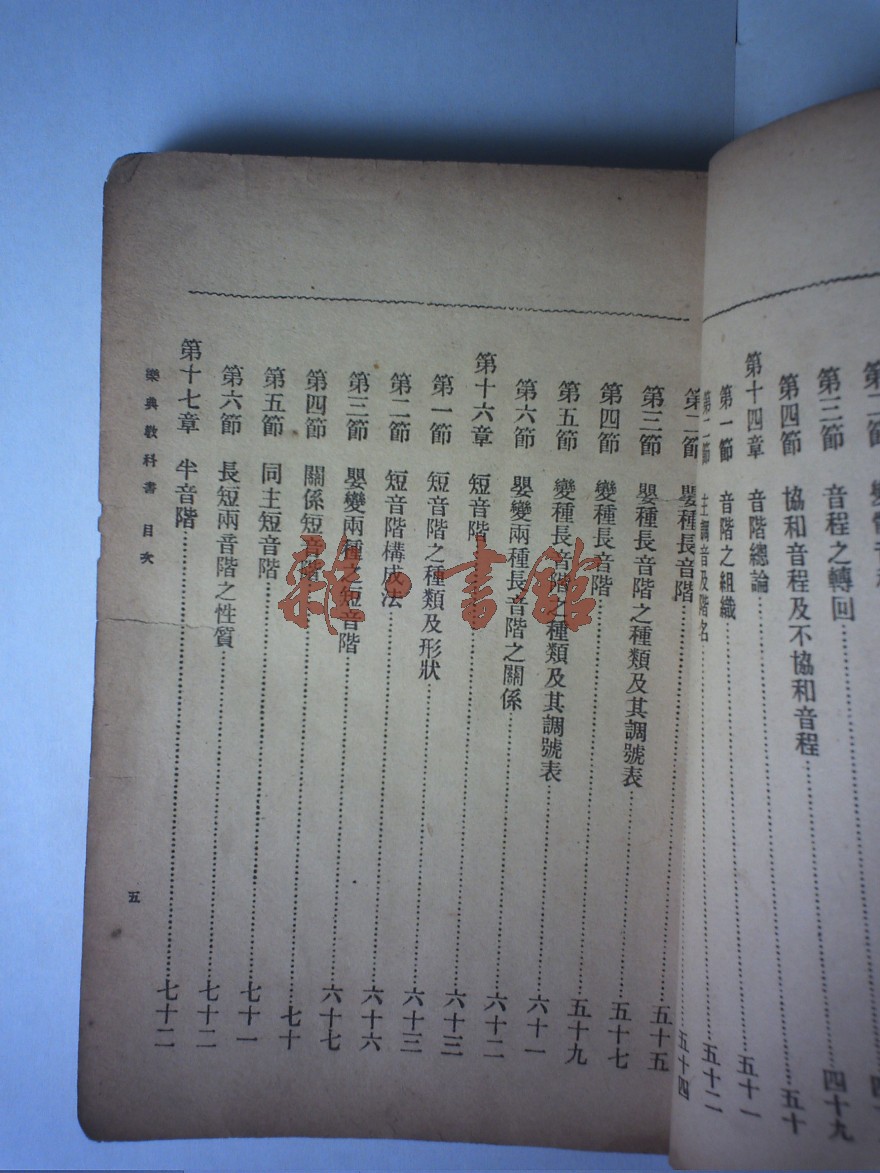 第三節　音程之轉回⋯⋯四十九
第四節　協和音程及不協和音程⋯⋯五十
第十四章　音階總論⋯⋯五十一
第一節　音階之組織⋯⋯五十二
第二節　主調音及階名
第二節　嬰種長音階⋯⋯五十四
第三節　嬰種長音階之種類及其調號表⋯⋯五十五
第四節　變種長音階⋯⋯五十七
第五節　變種長音階之種類及其調號表⋯⋯五十九
第六節　嬰變兩種長音階之關係⋯⋯六十一
第十六章　短音階⋯⋯六十二
第一節　短音階之種類及形狀⋯⋯六十三
第二節　短音階構成法⋯⋯六十三
第三節　嬰變兩種之短音階⋯⋯六十六
第四節　關係短音階⋯⋯六十七
第五節　同主短音階⋯⋯七十
第六節　長短兩音階之性質⋯⋯七十一
第十七章　半音階⋯⋯七十二
七十二
樂典教科書　目次
五
雜·書館